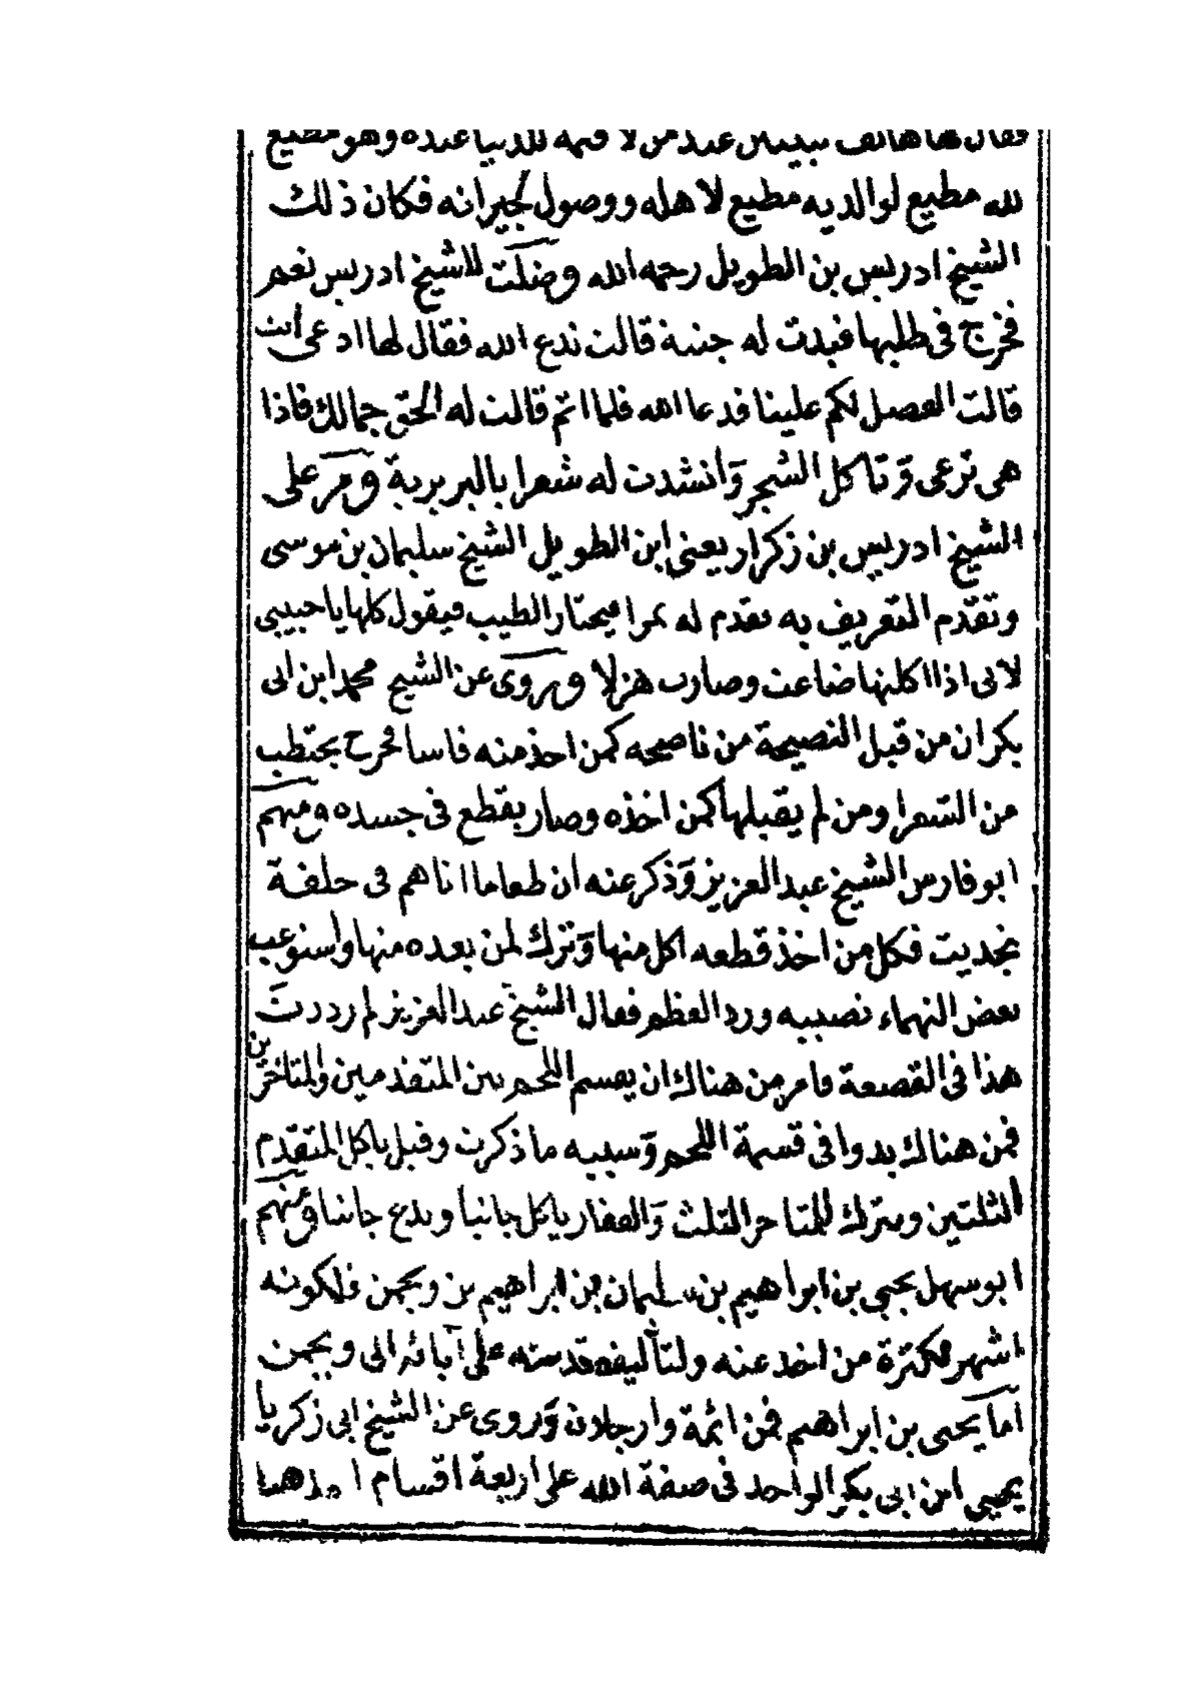 فقال لها هاتف عند من لا قيمة للدنيا عنده وهو مطيع
لله مطيع لوالديه مطيع لاهله ووصول لجيرانه فكان ذلك
الشيخ ادريس بن الطويل رحمه الله وضلت للشيخ ادريس نعم
فخرج فى طلبها فبدت له جنية قالت ندع الله فقال لها ادعى انت
قالت الفضل لكم علينا فدعا الله فلما اتم قالت له الحق جمالك فاذا
هى ترعى وتاكل الشجر وانشدت له شعرا بالبربرية ومر على
الشيخ ادريس بن زكرار يعنى ابن الطويل الشيخ سليمان بن موسى
وتقدم التعريف به فقدم له تمرا فيختار الطيب فيقول كلها يا حبيبى
لانى اذا اكلتها ضاعت وصارت هزلا وروى عن الشيخ محمد ابن ابى
بكر ان من قبل النصيحة من ناصحه كمن اخذ منه فاسا فخرج يحتطب
من الشعرا ومن لم يقبلها كمن اخذه وصار يقطع فى جسده ومنهم
ابو فارس الشيخ عبد العزيز وذكر عنه ان طعاما اتاهم فى حلقة
بحديت فكل من اخذ قطعه اكل منها وترك لمن بعده منها واستوعب
بعض النهماء نصيبه ورد العظم فقال الشيخ عبد العزيز لم رددت
هذا فى القصعة فامر من هناك ان يقسم اللحم بين المتقدمين والمتاخرين
فمن هناك بدوا فى قسمة اللحم وسببه ما ذكرت وقيل ياكل المتقدم
الثلتين ويترك للمتاخر الثلث والفقار ياكل جانبا ويدع جانبا ومنهم
ابو سهل يحيى بن ابراهيم بن سليمان بن ابراهيم بن ويجمن فلكونه
اشهر وكثرة من اخذ عنه ولتأليفه قدمته على آبائه الى ويجمن
اما يحيى بن ابراهيم فمن ائمة وارجلان وروى عن الشيخ ابى زكريا
يحيى ابن ابى بكر الواحد فى صفة الله على اربعة اقسام